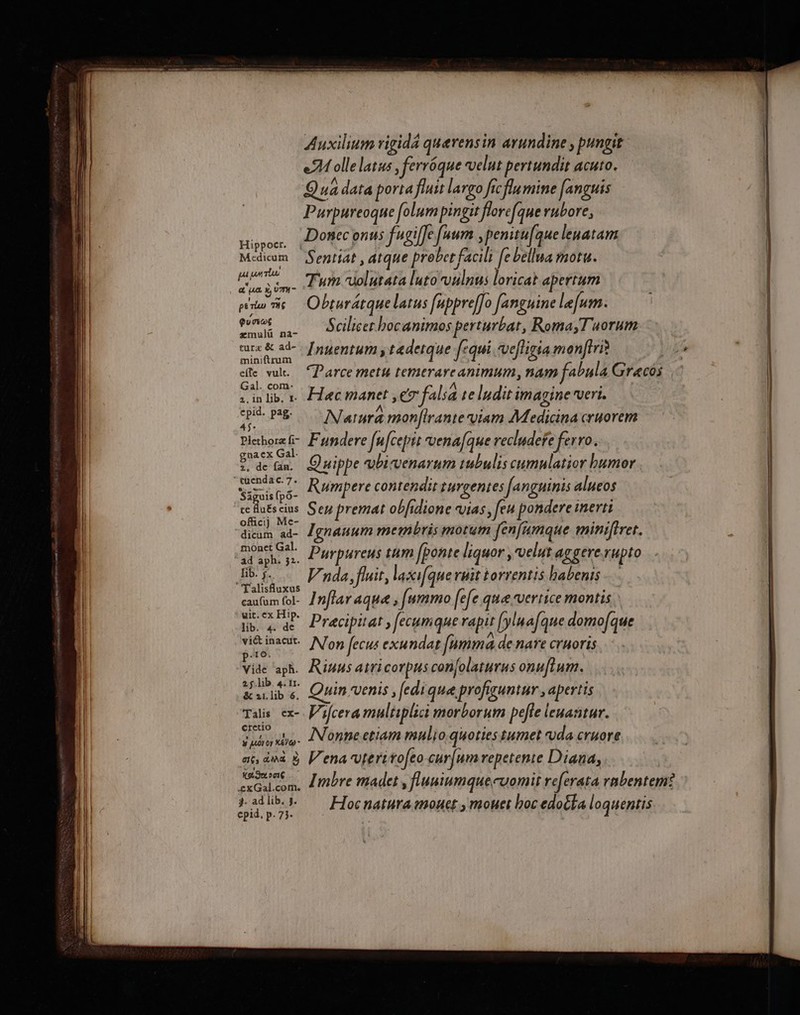 Auxilium rigidâ quærens in arundine, pungit
Molle latus, ferróque velut pertundit acuto.
Quà data porta fluit largo sic flumine sanguis
Purpureoque solum pingit floresque rubore,
Donec onus fugisse suum, penitusque leuatam
Sentiat, atque probet facili se bellua motu.
Tum volutata luto vulnus loricat apertum
Obturátque latus suppresso sanguine læsum.
Scilicet hoc animos perturbat, Roma, Tuorum
Inuentum, tædetque sequi vestigia monstri?
Parce metu temerare animum, nam fabula Græcos
Hæc manet, & falsâ te ludit imagine veri.
Naturâ monstrante viam Medicina cruorem
Fundere suscepit venasque recludere ferro.
Quippe vbi venarum tubulis cumulatior humor
Rumpere contendit turgentes sanguinis alueos
Seu premat obsidione vias, seu pondere inerti
Ignauum membris motum sensumque ministret.
Purpureus tum sponte liquor, velut aggere rupto
Vnda, fluit, laxisque ruit torrentis habenis
Instar aquæ, summo sese quæ vertice montis
Præcipitat, secumque rapit syluasque domosque
Non secus exundat summâ de nare cruoris
Riuus atri corpus consolaturus onustum.
Quin venis, sedi quæ profiguntur, apertis
Viscera multiplici morborum peste leuantur.
Nonne etiam mulio quoties tumet vda cruore
Vena vteri roseo cursum repetente Diana,
Imbre madet, fluuiumque vomit reserata rubentem?
Hoc natura mouet, mouet hoc edocta loquentis
Hippocr.
Medicum
æmulũ na-
turæ & ad-
ministrum
esse vult.
Gal. com.
2. in lib. 1.
epid. pag.
45.
Plethoræ si-
gna ex Gal.
2. de san.
tuenda c. 7.
Sãguis spó-
te fluẽs eius
officij Me-
dicum ad-
monet Gal.
ad aph. 32.
lib. 5.
Talis fluxus
causum sol-
uit. ex Hip.
lib. 4. de
vict inacut.
p. 10.
Vide aph.
25. lib. 4. 11.
& 21. lib 6.
Talis ex-
cretio
ex Gal. com.
3. ad lib. 3.
epid. p. 73.